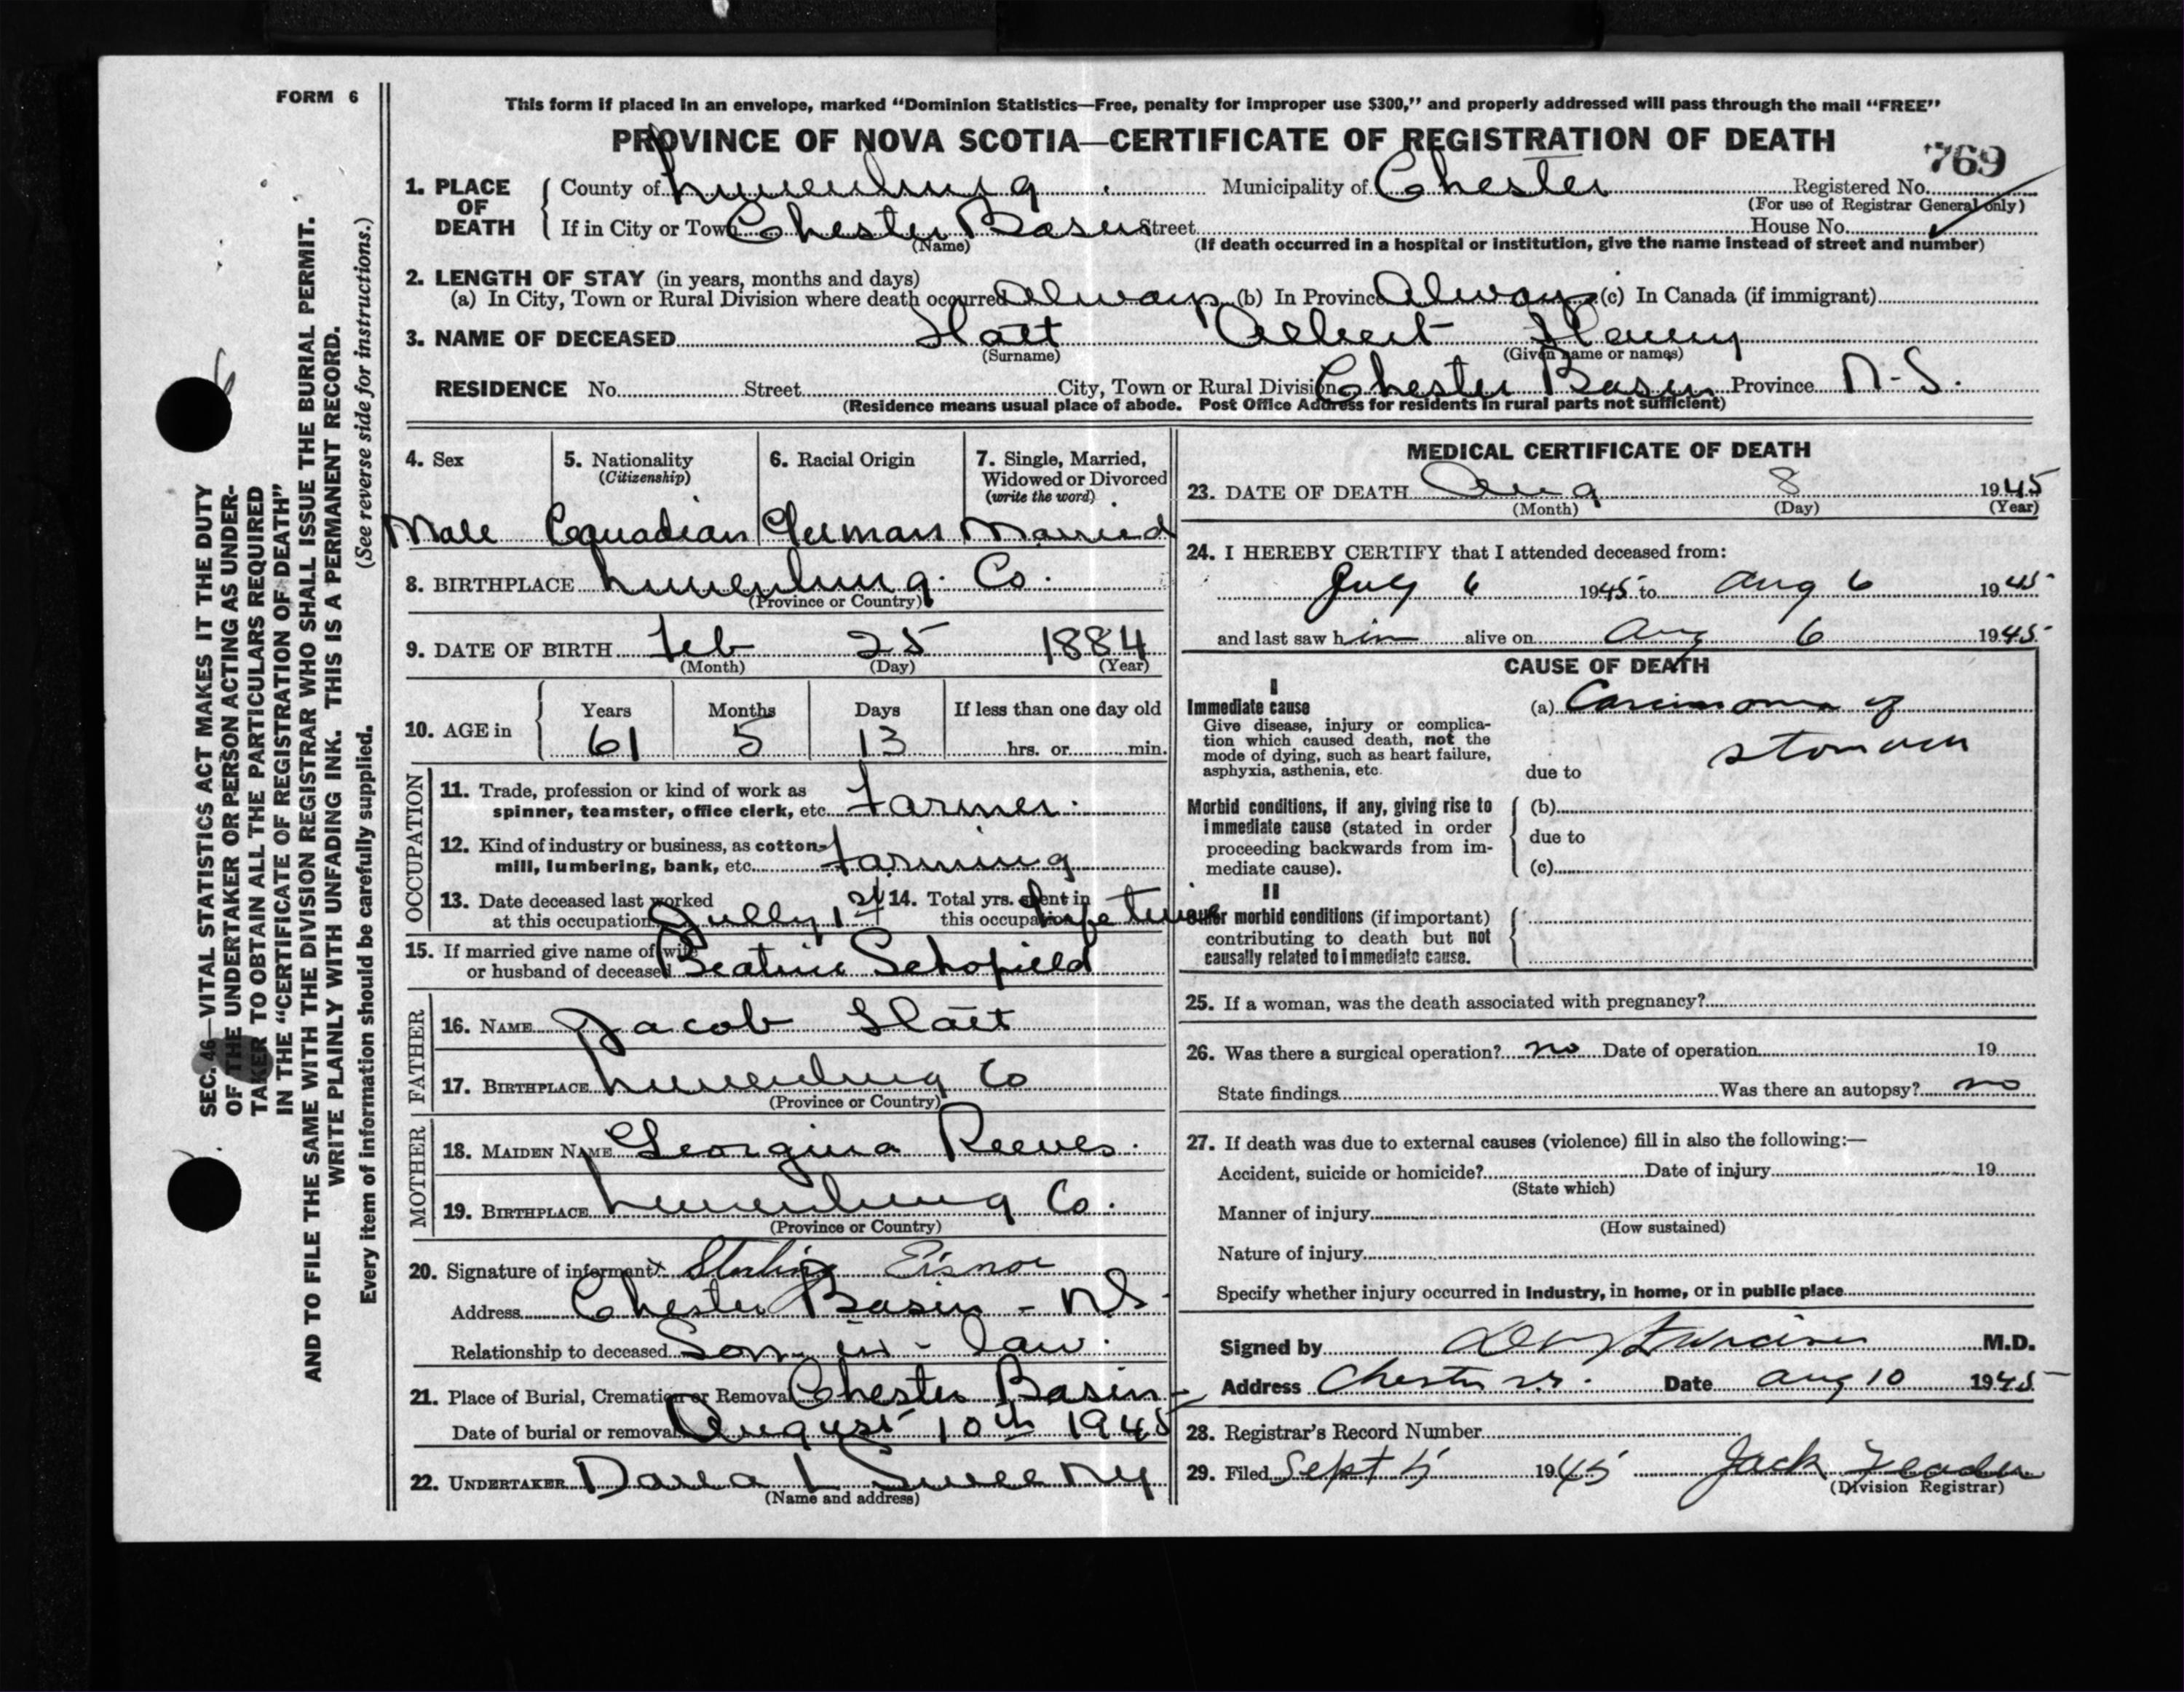 FORM 6
This form if placed in an envelope, marked “Dominion Statistics—Free, penalty for improper use $300,” and properly addressed will pass through the mail “FREE”
PROVINCE OF NOVA SCOTIA—CERTIFICATE OF REGISTRATION OF DEATH
769
1. PLACE OF DEATH
County of Lunenburg Municipality of Chester Registered No.
(For use of Registrar General only)
If in City or Town Chester Basin Street House No.
(Name) (If death occurred in a hospital or institution, give the name instead of street and number)
2. LENGTH OF STAY (in years, months and days)
(a) In City, Town or Rural Division where death occurred Always (b) In Province Always (c) In Canada (if immigrant)
3. NAME OF DECEASED Hatt Albert Henry
(Surname) (Given name or names)
RESIDENCE No. Street City, Town or Rural Division Chester Basin Province N.S.
(Residence means usual place of abode. Post Office Address for residents in rural parts not sufficient)
4. Sex 5. Nationality (Citizenship) 6. Racial Origin 7. Single, Married, Widowed or Divorced (write the word)
Male Canadian German Married
8. BIRTHPLACE Lunenburg Co.
(Province or Country)
9. DATE OF BIRTH Feb 25 1884
(Month) (Day) (Year)
10. AGE in Years Months Days If less than one day old
61 5 13 hrs. or min.
OCCUPATION
11. Trade, profession or kind of work as
spinner, teamster, office clerk, etc. Farmer.
12. Kind of industry or business, as cotton-
mill, lumbering, bank, etc. Farming
13. Date deceased last worked 14. Total yrs. spent in
at this occupation Jully 1st this occupation Life time
15. If married give name of wife
or husband of deceased Beatrice Schofield
FATHER
16. NAME Jacob Hatt
17. BIRTHPLACE Lunenburg Co
(Province or Country)
MOTHER
18. MAIDEN NAME Georgina Reeves.
19. BIRTHPLACE Lunenburg Co.
(Province or Country)
20. Signature of informant x Sterling Eisnor
Address Chester Basin - NS
Relationship to deceased Son - in - law.
21. Place of Burial, Cremation or Removal Chester Basin -
Date of burial or removal August 10th 1945
22. UNDERTAKER L Sweeny
(Name and address)
MEDICAL CERTIFICATE OF DEATH
23. DATE OF DEATH Aug 8 1945
(Month) (Day) (Year)
24. I HEREBY CERTIFY that I attended deceased from:
July 6 1945 to Aug 6 1945
and last saw him alive on Aug 6 1945
CAUSE OF DEATH
I
Immediate cause (a) Carcinoma of
Give disease, injury or complica-
tion which caused death, not the stomach
mode of dying, such as heart failure,
asphyxia, asthenia, etc. due to
Morbid conditions, if any, giving rise to (b)
immediate cause (stated in order
proceeding backwards from im- due to
mediate cause). (c)
II
Other morbid conditions (if important)
contributing to death but not
causally related to immediate cause.
25. If a woman, was the death associated with pregnancy?
26. Was there a surgical operation? no Date of operation 19
State findings Was there an autopsy? no
27. If death was due to external causes (violence) fill in also the following:—
Accident, suicide or homicide? Date of injury 19
(State which)
Manner of injury
(How sustained)
Nature of injury
Specify whether injury occurred in industry, in home, or in public place
Signed by M.D.
Address Chester N.S. Date Aug 10 1945
28. Registrar's Record Number
29. Filed Sept 5 1945 Jack
(Division Registrar)
SEC. 46—VITAL STATISTICS ACT MAKES IT THE DUTY
OF THE UNDERTAKER OR PERSON ACTING AS UNDER-
TAKER TO OBTAIN ALL THE PARTICULARS REQUIRED
IN THE “CERTIFICATE OF REGISTRATION OF DEATH”
AND TO FILE THE SAME WITH THE DIVISION REGISTRAR WHO SHALL ISSUE THE BURIAL PERMIT.
WRITE PLAINLY WITH UNFADING INK. THIS IS A PERMANENT RECORD.
Every item of information should be carefully supplied. (See reverse side for instructions.)